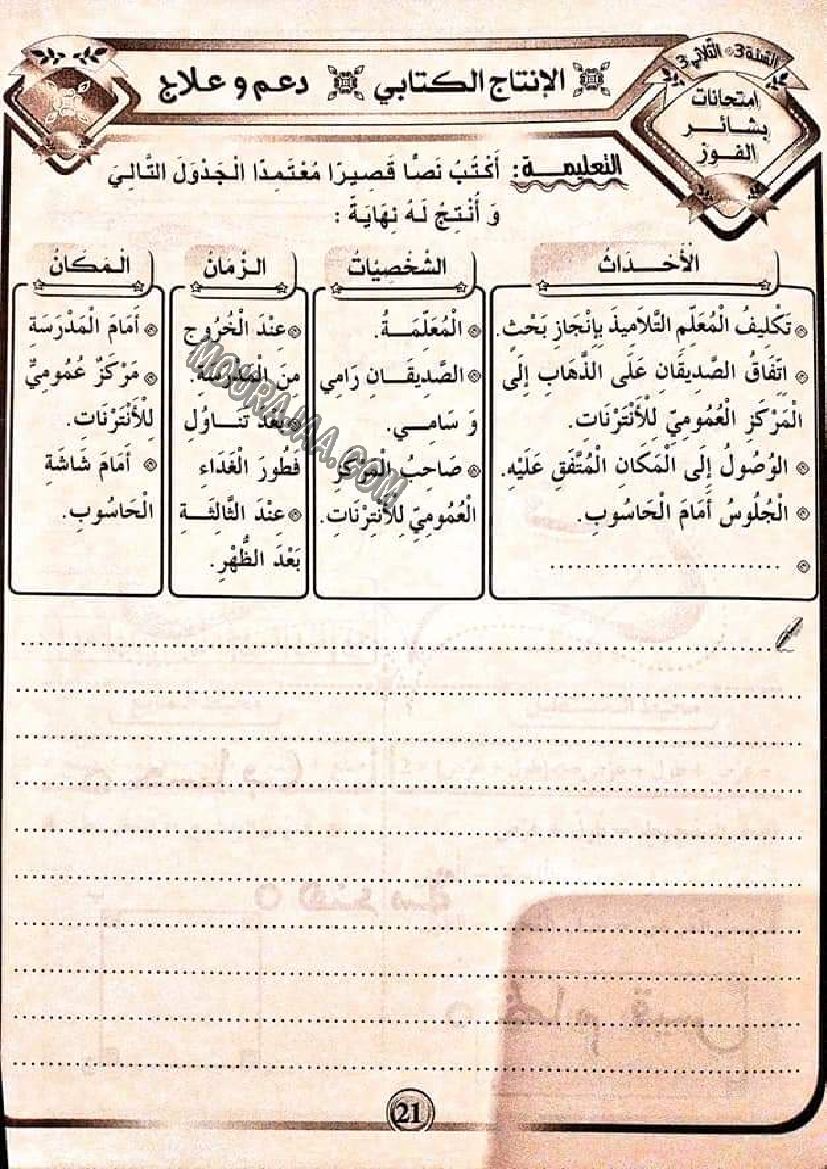 السّنة 3 الثّلاثي 3
امتحانات
بشائر
الفوز
الإنتاج الكتابي دعم و علاج
التعليمة: أَكْتُبُ نَصًّا قَصِيرًا مُعْتَمِدًا الْجَدْوَلَ التَّالِيَ
وَ أُنْتِجُ لَهُ نِهَايَةً :
الْأَحْدَاثُ
تَكْلِيفُ الْمُعَلِّمِ التَّلَامِيذَ بِإِنْجَازِ بَحْثٍ.
اِتِّفَاقُ الصَّدِيقَانِ عَلَى الذَّهَابِ إِلَى
الْمَرْكَزِ الْعُمُومِيِّ لِلْأَنْتِرْنَاتِ.
الْوُصُولُ إِلَى الْمَكَانِ الْمُتَّفَقِ عَلَيْهِ.
الْجُلُوسُ أَمَامَ الْحَاسُوبِ.
..............................
الشَّخْصِيَّاتُ
الْمُعَلِّمَةُ.
الصَّدِيقَانِ رَامِي
وَ سَامِي.
صَاحِبُ الْمَرْكَزِ
الْعُمُومِيِّ لِلْأَنْتِرْنَاتِ.
الزَّمَانُ
عِنْدَ الْخُرُوجِ
مِنَ الْمَدْرَسَةِ.
بَعْدَ تَنَاوُلِ
فَطُورَ الْغَدَاءِ
عِنْدَ الثَّالِثَةِ
بَعْدَ الظُّهْرِ.
الْمَكَانُ
أَمَامَ الْمَدْرَسَةِ
مَرْكَزٌ عُمُومِيٌّ
لِلْأَنْتِرْنَاتِ.
أَمَامَ شَاشَةِ
الْحَاسُوبِ.
MOURAJAA.COM
21